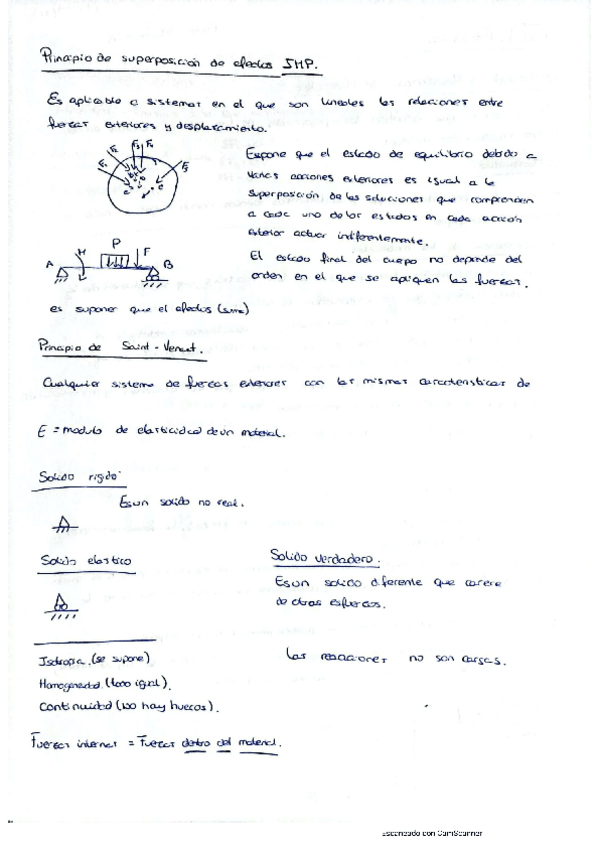 Principio de superposición de efectos IMP.
Es aplicable a sistemas en el que son lineales las relaciones entre
fuerzas exteriores y desplazamiento.
F1 F2 F3 F4 F5
Expone que el estado de equilibrio debido a
varias acciones exteriores es igual a la
superposición de las soluciones que comprenden
a cada uno de los estados en cada acción
exterior actuar indiferentemente.
El estado final del cuerpo no depende del
orden en el que se apliquen las fuerzas.
A M P F B
es suponer que el efectos (suma)
Principio de Saint-Venant.
Cualquier sistema de fuerzas exteriores con las mismas características de
E = modulo de elasticidad de un material.
Solido rigido
Es un solido no real.
Solido elastico
Solido verdadero.
Es un solido diferente que carece
de otras esfuerzos.
Isotropia. (se supone)
Homogeneidad (todo igual).
Continuidad (no hay huecos).
Las reacciones no son cargas.
Fuerzas internas = Fuerzas dentro del material.
Escaneado con CamScanner